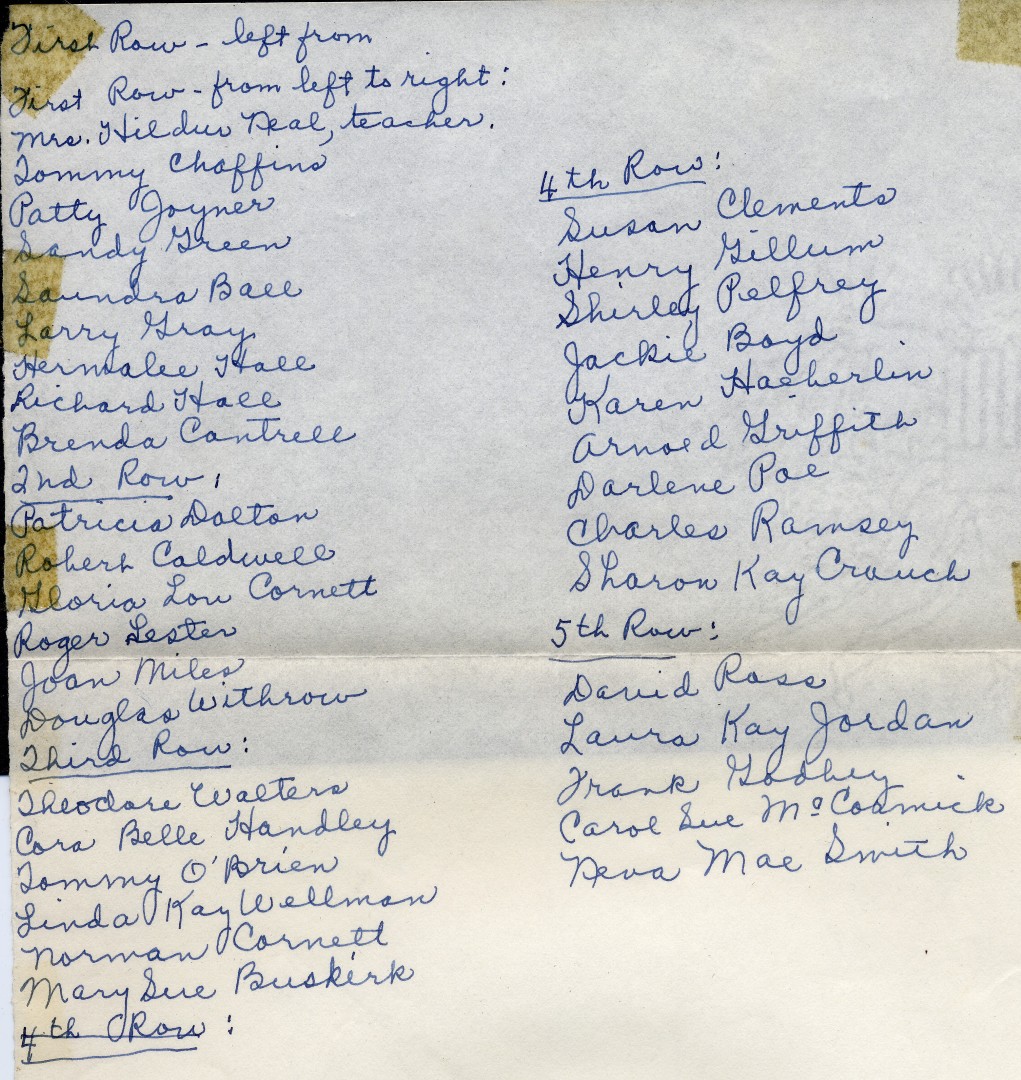 First Row - left from
First Row - from left to right:
Mrs. Hildur Neal, teacher.
Tommy Chaffins
Patty Joyner
Sandy Green
Saundra Ball
Larry Gray
Hermalee Hall
Richard Hall
Brenda Cantrell
2nd Row:
Patricia Dalton
Robert Caldwell
Gloria Lou Cornett
Roger Lester
Joan Miles
Douglas Withrow
Third Row:
Theodore Walters
Cora Belle Handley
Tommy O'Brien
Linda Kay Wellman
Norman Cornett
Mary Sue Buskirk
4th Row:
4th Row:
Susan Clements
Henry Gillum
Shirley Pelfrey
Jackie Boyd
Karen Haeberlin
Arnold Griffith
Darlene Poe
Charles Ramsey
Sharon Kay Crouch
5th Row:
David Ross
Laura Kay Jordan
Frank Godbey
Carol Sue McCormick
Neva Mae Smith